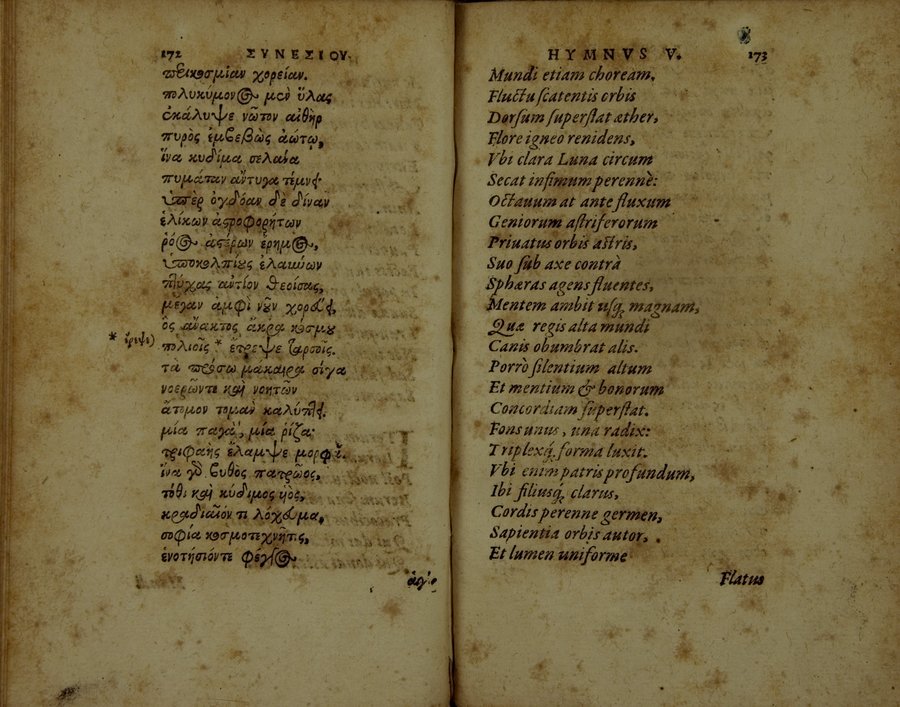 172 ΣΥΝΕΣΙΟΥ.
περικοσμίαν χορείαν.
πολυκύμονος μὲν ὕλας
ἐκάλυψε νῶτον αἰθὴρ
πυρὸς ἐμβεβὼς ἀώτῳ,
ἵνα κυδίμα σελάνα
πυμάταν ἄντυγα τέμνει·
ὑπὲρ ὀγδόαν δὲ δίναν
ἑλίκων ἀστροφορήτων
ῥόος ἀστέρων ἔρημος,
ὑποκολπίους ἐλαύνων
πτύχας ἀντίον θεοίσας,
μέγαν ἀμφὶ νοῦν χορεύει,
ὃς ἄνακτος ἄκρα κόσμου
πολιοῖς * ἔτρεψε ταρσοῖς.
* ἔρεψε
τὰ πρόσω μάκαιρα σίγα
νοερῶντε καὶ νοητῶν
ἄτομον τομὰν καλύπτει.
μία παγά, μία ῥίζα·
τριφαὴς ἔλαμψε μορφά.
ἵνα γὸ βυθος πατρῷος,
τόθι καὶ κύδιμος υἱὸς,
κραδιαῖόν τι λόχευμα,
σοφία κοσμοτεχνῆτις,
ἑνοτήσιόντε φέγγος
ἁγί
HYMNVS V. 173
Mundi etiam choream.
Fluctu scatentis orbis
Dorsum superstat æther,
Flore igneo renidens,
Vbi clara Luna circum
Secat infimum perennè:
Octauum at ante fluxum
Geniorum astriferorum
Priuatus orbis astris,
Suo sub axe contrà
Sphæras agens fluentes,
Mentem ambit usq; magnam,
Quæ regis alta mundi
Canis obumbrat alis.
Porrò silentium altum
Et mentium & bonorum
Concordiam superstat.
Fons unus, una radix:
Triplexq; forma luxit.
Vbi enim patris profundum,
Ibi filiusq; clarus,
Cordis perenne germen,
Sapientia orbis autor,
Et lumen uniforme
Flatus